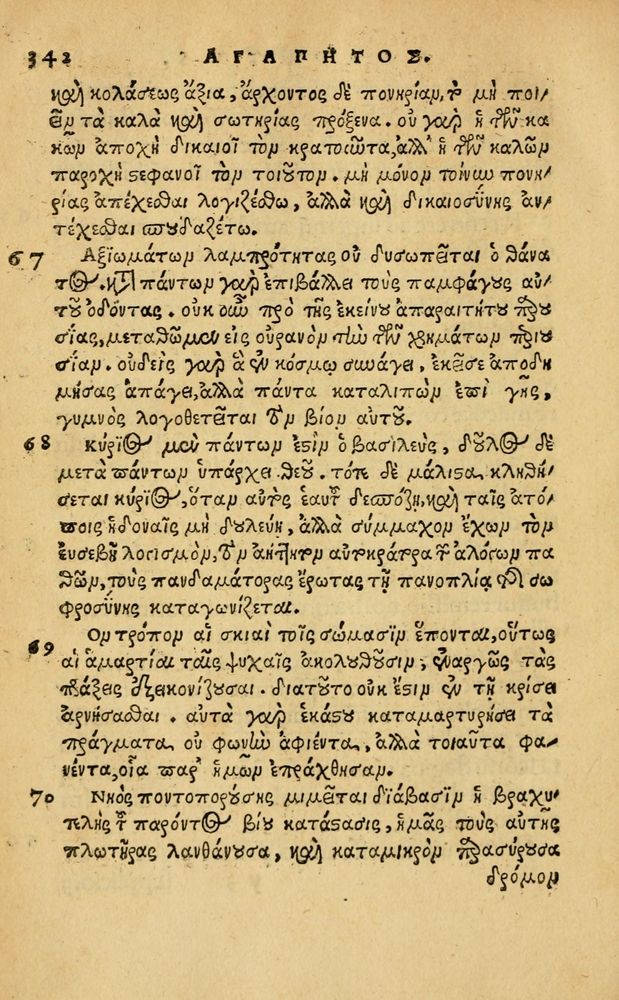 342 ΑΓΑΠΗΤΟΣ.
καὶ κολάσεως ἄξια, ἄρχοντος δὲ πονηρίαν, τὸ μὴ ποι/
εῖν τὰ καλὰ καὶ σωτηρίας πρόξενα. οὐ γὰρ ἡ τῶν κα
κῶν ἀποχὴ δικαιοῖ τὸν κρατοῦντα, ἀλλ' ἡ τῶν καλῶν
παροχὴ στεφανοῖ τὸν τοιοῦτον. μὴ μόνον τοίνυν πονη/
ρίας ἀπέχεσθαι λογιζέσθω, ἀλλὰ καὶ δικαιοσύνης ἀν/
τέχεσθαι σπουδαζέτω.
67 Ἀξιωμάτων λαμπρότητας οὐ δυσωπεῖται ὁ θάνα
τος. κατὰ πάντων γὰρ ἐπιβάλλει τοὺς παμφάγους αὐ/
τοῦ ὀδόντας. οὐκοῦν πρὸ τῆς ἐκείνου ἀπαραιτήτου παρου
σίας, μεταθῶμεν εἰς οὐρανὸν τὴν τῶν χρημάτων περιου
σίαν. οὐδεὶς γὰρ ἃ ἐν κόσμῳ συνάγει, ἐκεῖσε ἀποδη
μήσας ἀπάγει, ἀλλὰ πάντα καταλιπὼν ἐπὶ γῆς,
γυμνὸς λογοθετεῖται τὸν βίον αὐτοῦ.
68 Κύριος μὲν πάντων ἐστὶν ὁ βασιλεὺς, δοῦλος δὲ
μετὰ πάντων ὑπάρχει θεοῦ. τότε δὲ μάλιστα κληθή/
σεται κύριος, ὅταν αὐτὸς ἑαυτοῦ δεσπόζῃ, καὶ ταῖς ἀτό/
ποις ἡδοναῖς μὴ δουλεύῃ, ἀλλὰ σύμμαχον ἔχων τὸν
εὐσεβῆ λογισμὸν, τὸν ἀήττητον αὐτοκράτορα τῶν ἀλόγων πα
θῶν, τοὺς πανδαμάτορας ἔρωτας τῇ πανοπλίᾳ τῆς σω
φροσύνης καταγωνίζεται.
69 Ὃν τρόπον αἱ σκιαὶ τοῖς σώμασιν ἕπονται, οὕτως
αἱ ἁμαρτίαι ταῖς ψυχαῖς ἀκολουθοῦσιν, ἐναργῶς τὰς
πράξεις ἐξεικονίζουσαι. διατοῦτο οὐκ ἔστιν ἐν τῇ κρίσει
ἀρνήσασθαι. αὐτὰ γὰρ ἑκάστου καταμαρτυρήσει τὰ
πράγματα, οὐ φωνὴν ἀφιέντα, ἀλλὰ τοιαῦτα φα/
νέντα, οἷα παρ' ἡμῶν ἐπράχθησαν.
70 Νηὸς ποντοπορούσης μιμεῖται διάβασιν ἡ βραχυ/
τελὴς τοῦ παρόντος βίου κατάστασις, ἡμᾶς τοὺς αὐτῆς
πλωτῆρας λανθάνουσα, καὶ καταμικρὸν παρασύρουσα
δρόμον